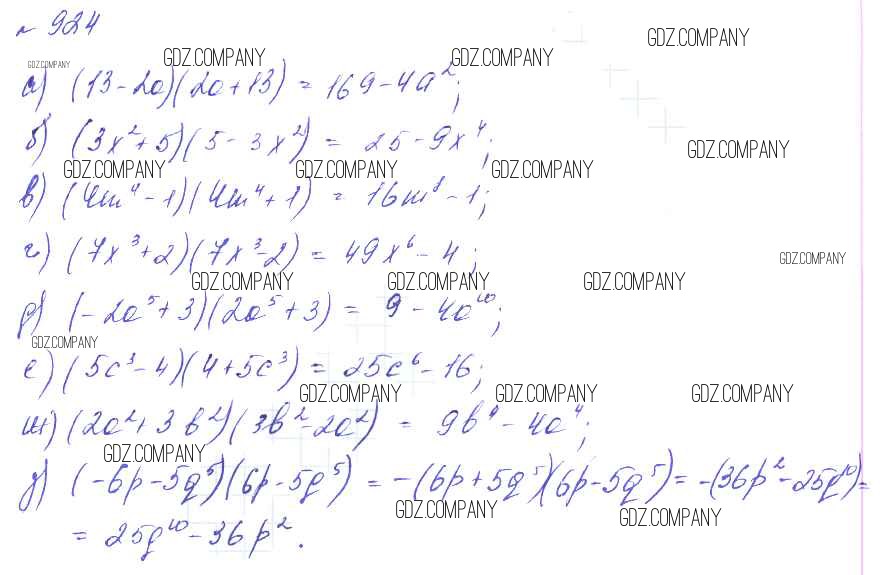 № 924
GDZ.COMPANY
GDZ.COMPANY GDZ.COMPANY
GDZ.COMPANY
а) (13 - 2a)(2a + 13) = 169 - 4a²;
б) (3x² + 5)(5 - 3x²) = 25 - 9x⁴;
GDZ.COMPANY
GDZ.COMPANY GDZ.COMPANY GDZ.COMPANY
в) (4m⁴ - 1)(4m⁴ + 1) = 16m⁸ - 1;
г) (7x³ + 2)(7x³ - 2) = 49x⁶ - 4;
GDZ.COMPANY
GDZ.COMPANY GDZ.COMPANY GDZ.COMPANY
д) (-2a⁵ + 3)(2a⁵ + 3) = 9 - 4a¹⁰;
GDZ.COMPANY
е) (5c³ - 4)(4 + 5c³) = 25c⁶ - 16;
GDZ.COMPANY GDZ.COMPANY GDZ.COMPANY
ж) (2a² + 3b²)(3b² - 2a²) = 9b⁴ - 4a⁴;
GDZ.COMPANY
з) (-6p - 5q⁵)(6p - 5q⁵) = -(6p + 5q⁵)(6p - 5q⁵) = -(36p² - 25q¹⁰) =
GDZ.COMPANY GDZ.COMPANY
= 25q¹⁰ - 36p².